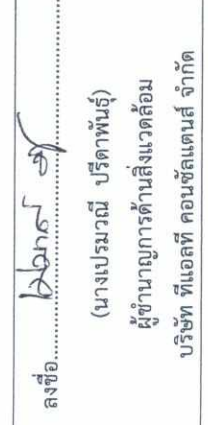 ลงชื่อ
(นางเปรมวณี ปรีดาพันธุ์)
ผู้ชำนาญการด้านสิ่งแวดล้อม
บริษัท ทีแอลที คอนซัลแตนส์ จำกัด